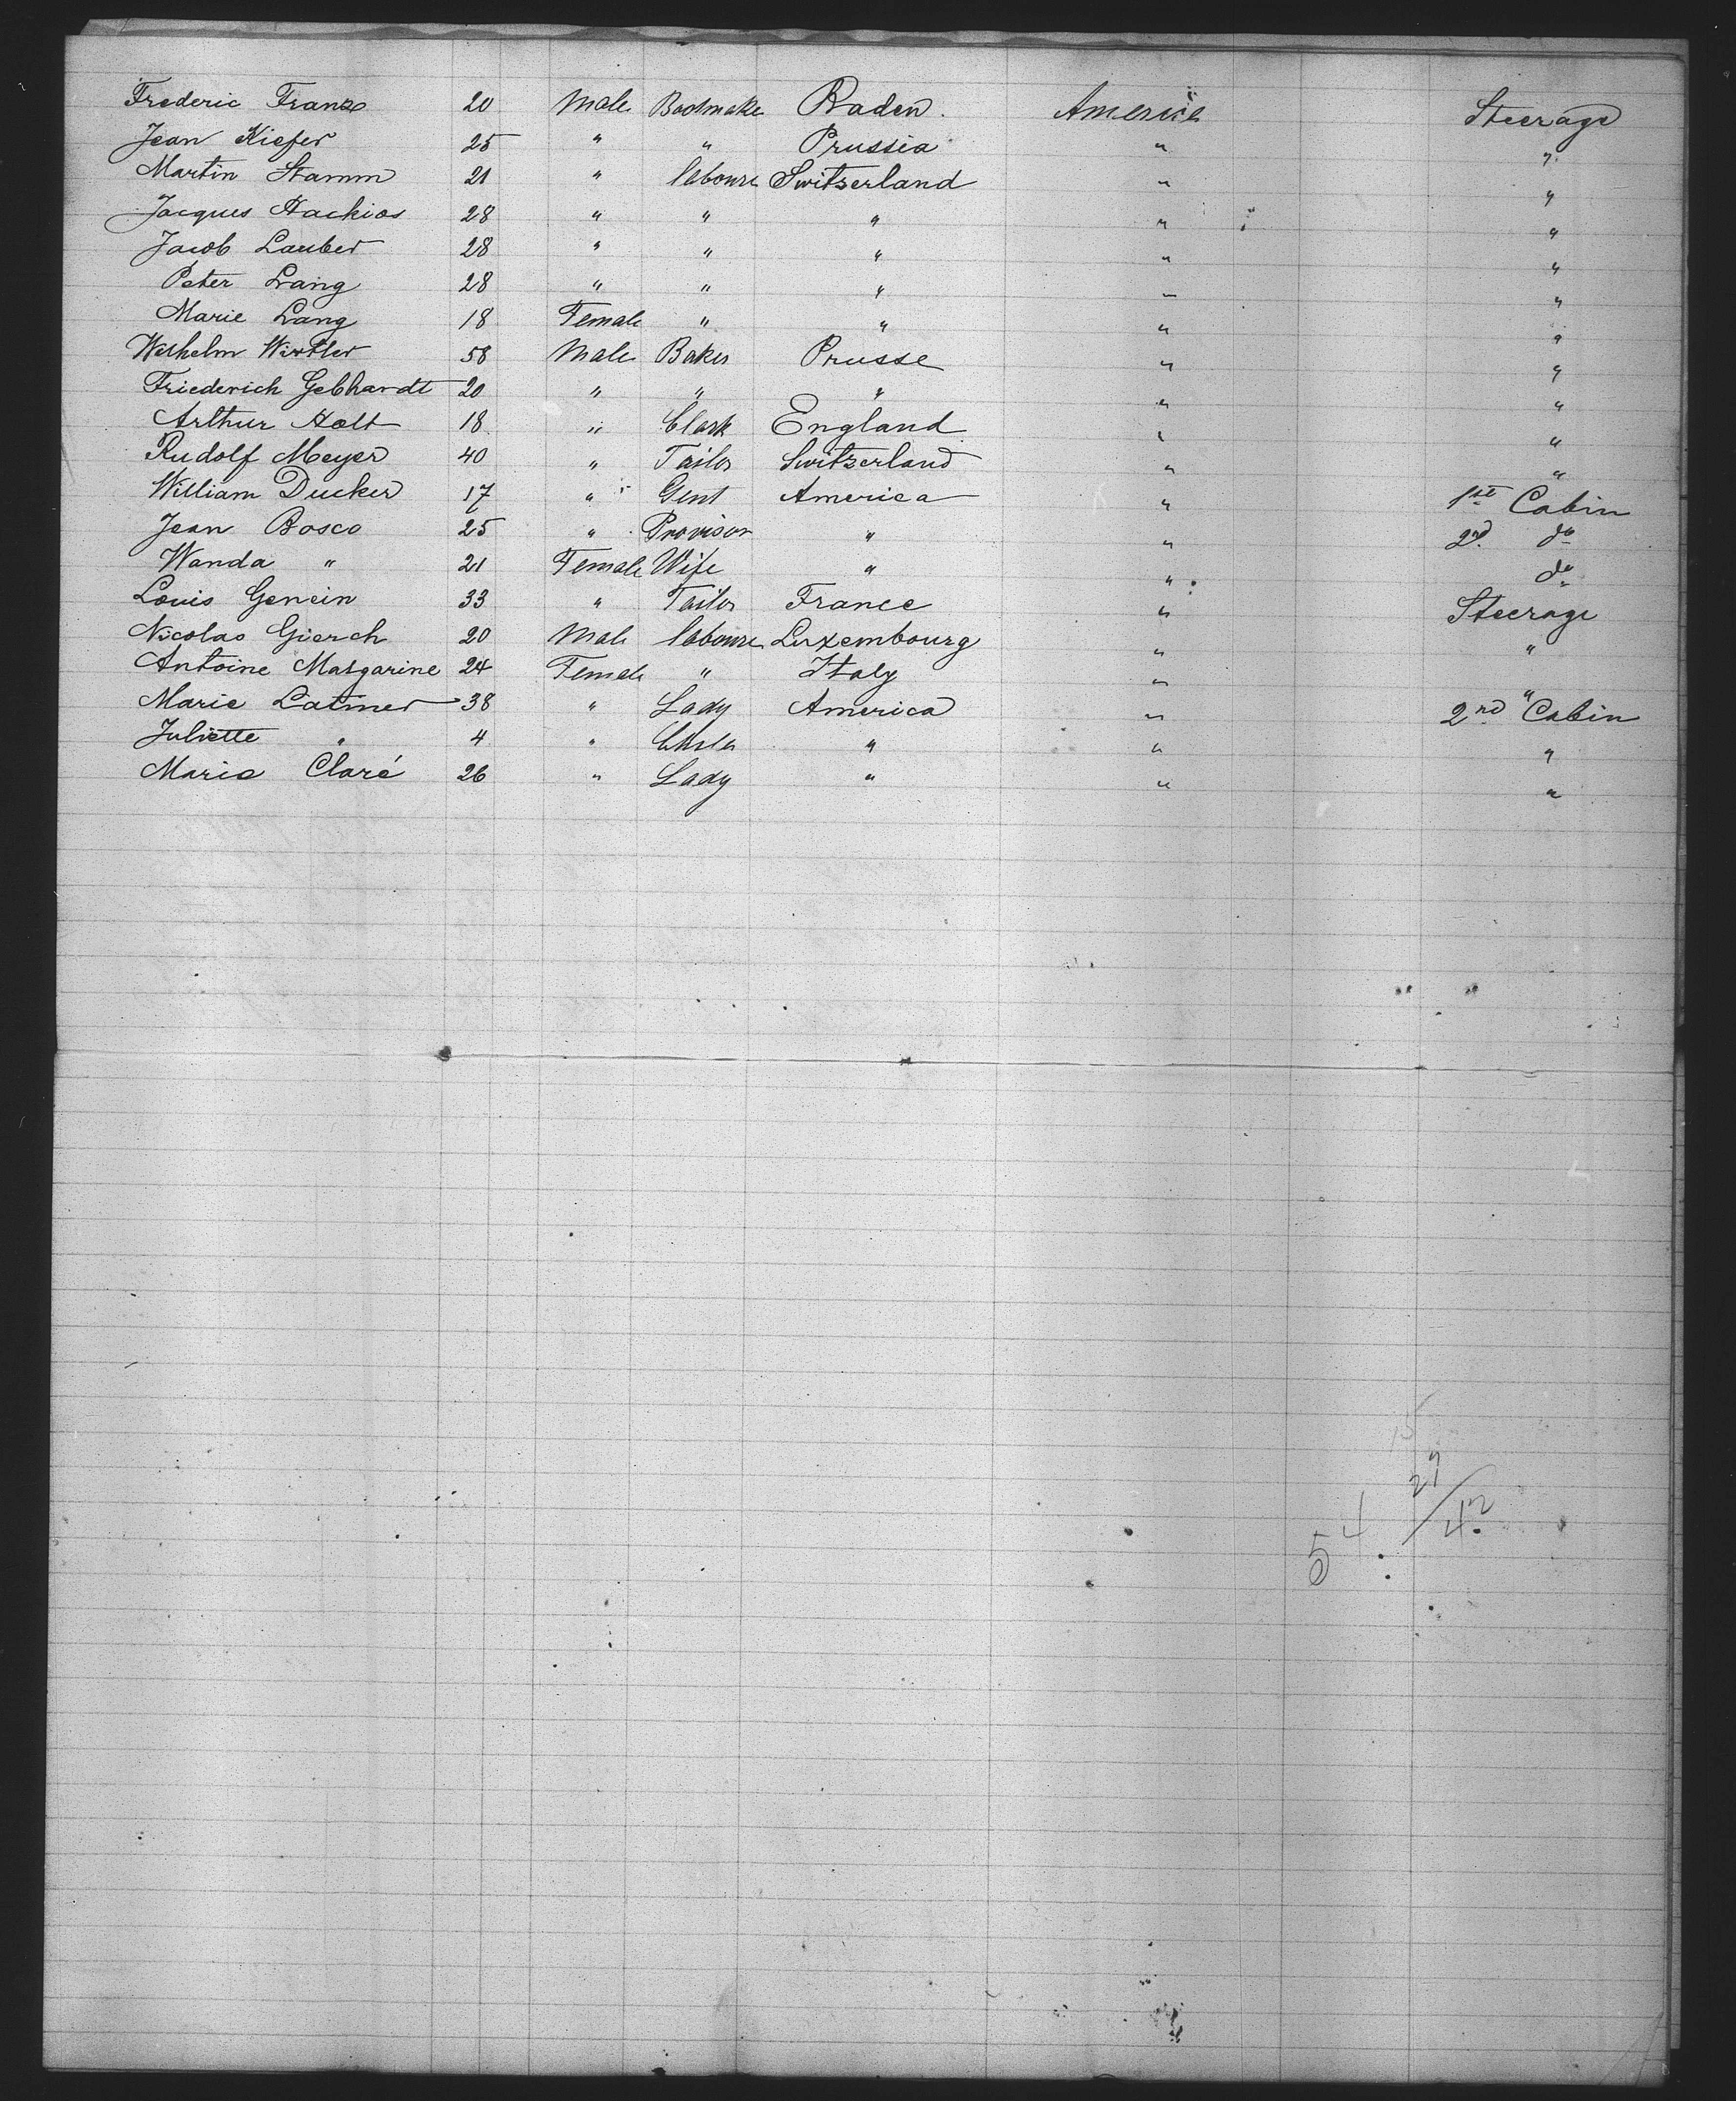 Frederic Franze 20 Male Bootmake Baden. America Steerage
Jean Kiefer 25 " " Prussia " "
Martin Stamm 21 " laboure Switzerland " "
Jacques Hackios 28 " " " " "
Jacob Lauber 28 " " " " "
Peter Lang 28 " " " " "
Marie Lang 18 Female " " " "
Wilhelm Wirtler 58 Male Baker Prusse " "
Friederich Gebhardt 20 " " " " "
Arthur Holt 18 " Clark England " "
Rudolf Meyer 40 " Tailor Switzerland " "
William Ducker 17 " Gent America " 1st Cabin
Jean Bosco 25 " Provisor " " 2nd do
Wanda " 21 Female Wife " " do
Louis Genein 33 " Tailor France " Steerage
Nicolas Gierch 20 Male laboure Luxembourg " "
Antoine Margarine 24 Female " Italy " "
Marie Latimer 38 " Lady America " 2nd Cabin
Juliette " 4 " " " "
Maria Claré 26 " Lady " " "
27/42
54